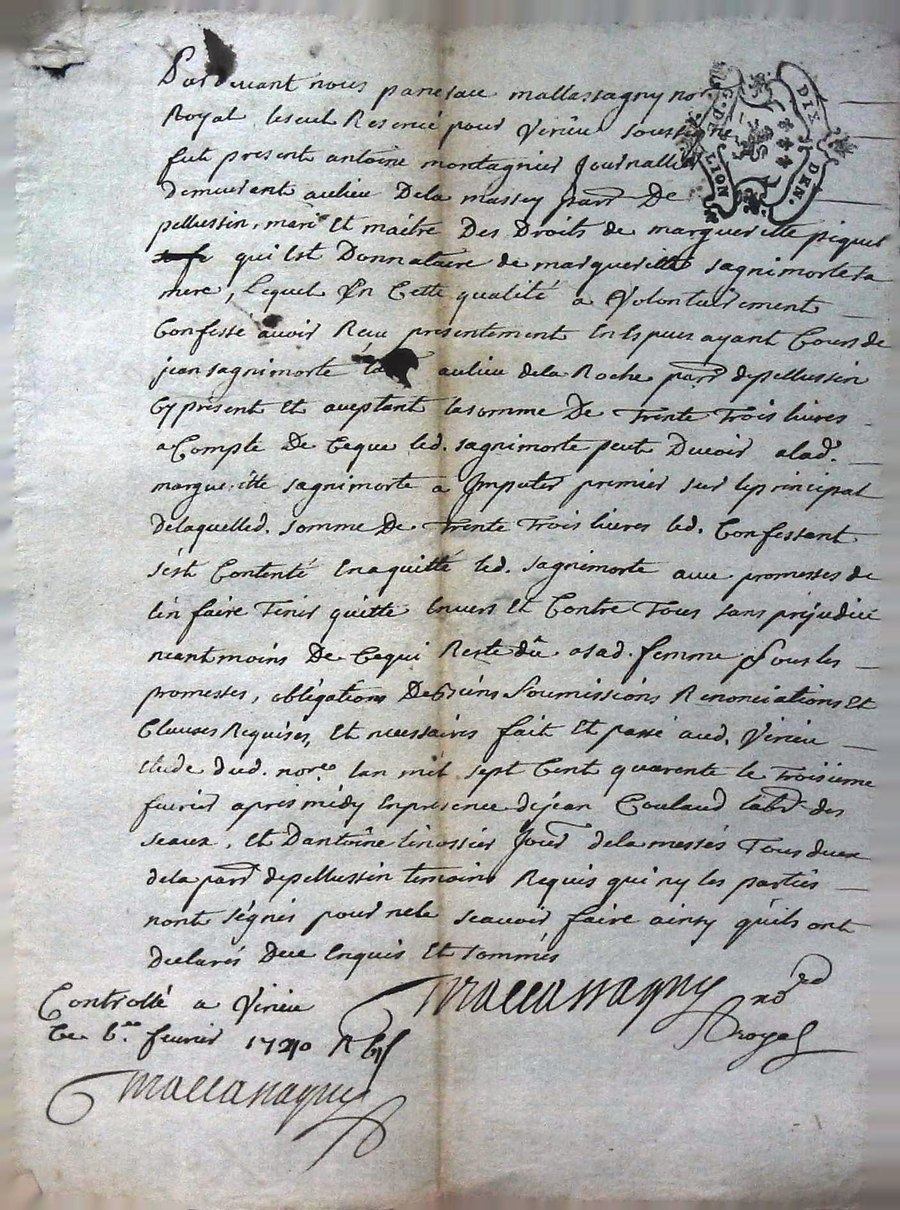 Par devant nous pancrace mallassagny no
Royal, leseul Reservé pour Virieu soussigne
fut present antoine montagnier Journallier
demeurent aulieu Dela massey parr. De
pellussin, mari Et maitre Des Droits de margueritte piquet
qui Est Donnataire de margueritte sagnimorte sa
mere, lequel En Cette qualité a Volontairement
Confessé avoir Reçu presentement En Especes ayant Cours de
jean sagnimorte aulieu dela Roche parr. depellussin
Cy présent Et aceptant lasomme De Trente Trois livres
a Compte De Ceque led. sagnimorte peut Devoir alad.
margueritte sagnimorte a Imputer premier sur leprincipal
delaquelled. somme De Trente Trois livres led. Confessant
s'est Contenté Enaquitté led. sagnimorte avec promesses de
l'en faire Tenir quitte Envers Et Contre Tous sans préjudice
neantmoins De Cequi Reste dû asad. femme sous les
promesses, obligations De biens Soumissions Renonciations Et
Clauses Requises, Et necessaires fait Et passé aud. Virieu
Etude dud. nore. lan mil sept Cent quarente le Troisieme
fevrier apres midy Enpresence dejean Coulaud labr. des
seaux, Et Dantoine linossier Jour. dela messés Tous deux
dela parr. depellussin temoins Requis qui ny les parties
nont signés pour nele scavoir faire ainsy quils ont
declarés deue Enquis Et sommés
Mallassagny no.re royal
Controllé a Virieu
Ce 6.me fevrier 1740 R
Mallassagny
DIX DEN.
G. D. LION